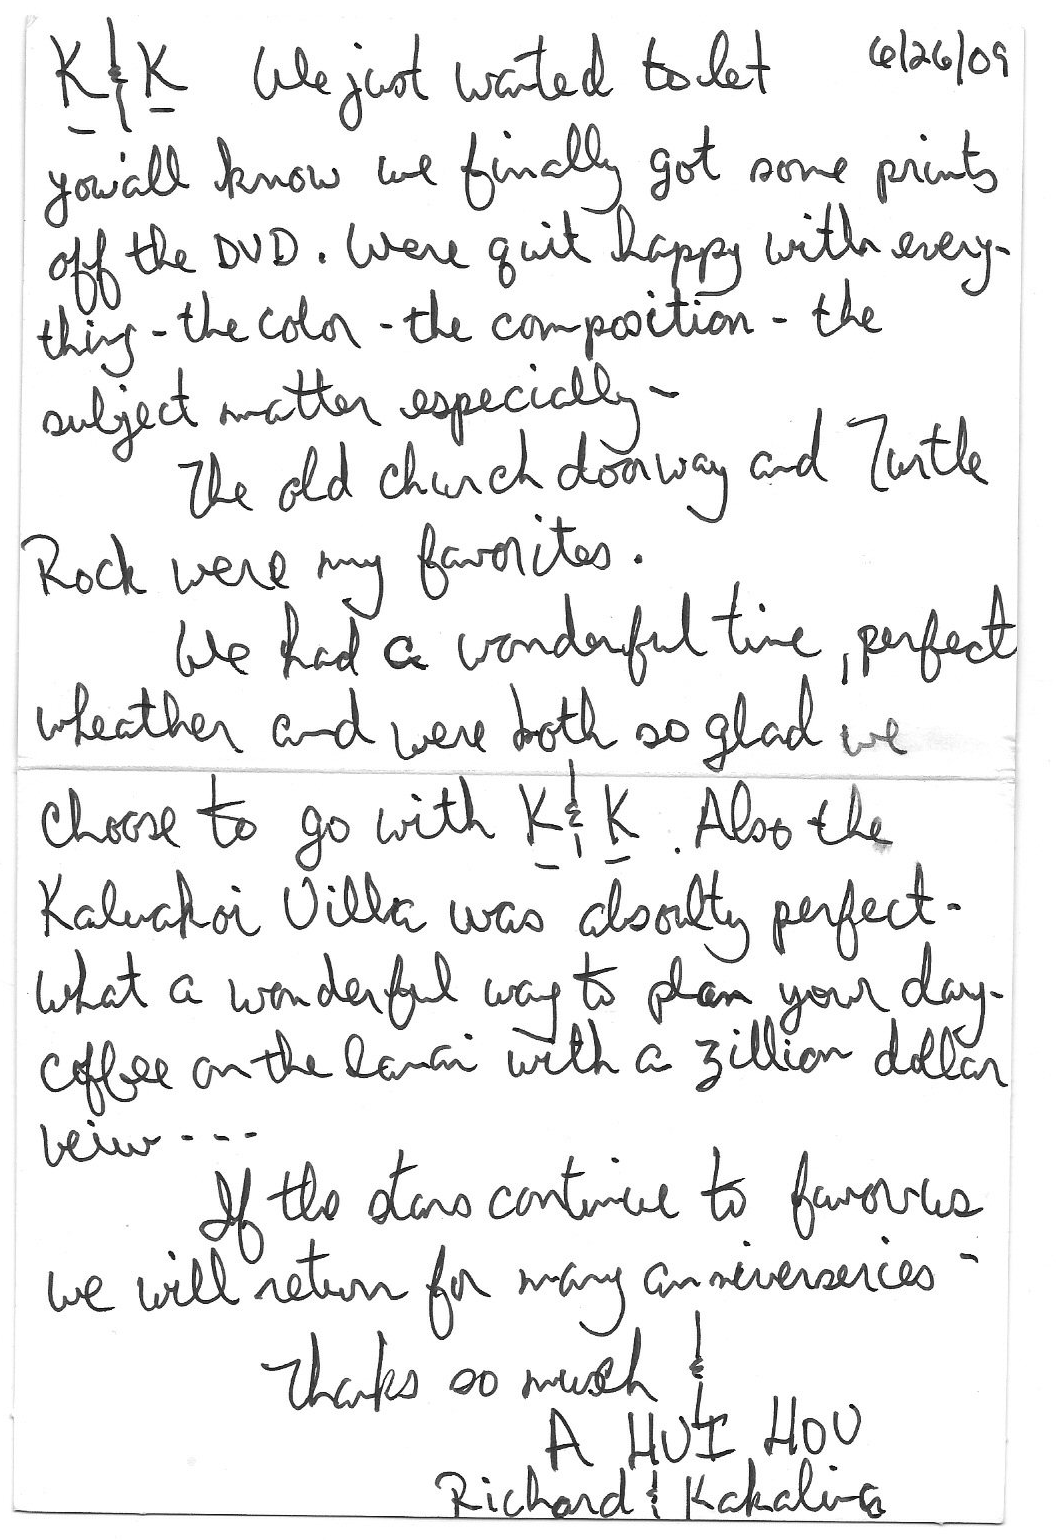 K & K We just wanted to let 6/26/09
you'all know we finally got some prints
off the DVD. Were quit happy with every-
thing - the color - the composition - the
subject matter especially -
The old church doorway and Turtle
Rock were my favorites.
We had a wonderful time, perfect
wheather and were both so glad we
choose to go with K & K. Also the
Kaluakoi Villa was absoulty perfect -
what a wonderful way to plan your day -
coffee on the lanai with a zillion dollar
veiw - - -
If the stars continue to favor us
we will return for many anniverseries -
Thanks so much &
A HUI HOU
Richard & Kakalina